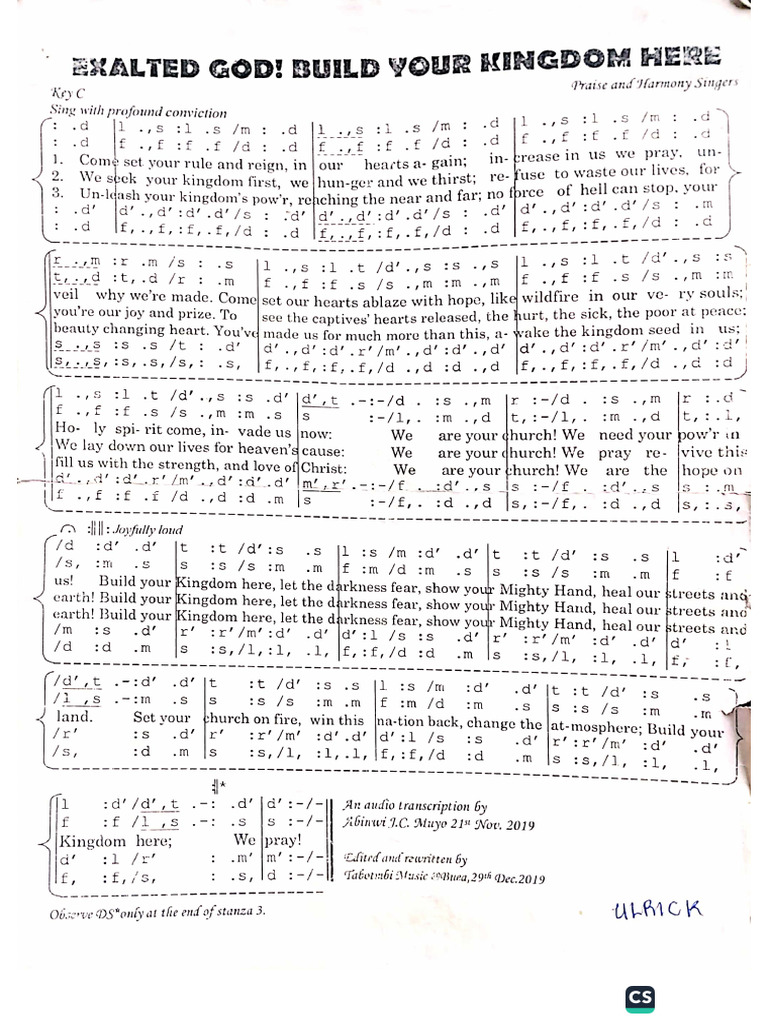 EXALTED GOD! BUILD YOUR KINGDOM HERE
Key C
Praise and Harmony Singers
Sing with profound conviction
: .d |l .,s :l .s /m : .d |l .,s :l .s /m : .d |l .,s :l .s /m : .d
: .d |f .,f :f .f /d : .d |f .,f :f .f /d : .d |f .,f :f .f /d : .d
1. Come set your rule and reign, in our hearts a- gain; in- crease in us we pray, un-
2. We seek your kingdom first, we hun-ger and we thirst; re- fuse to waste our lives, for
3. Un-leash your kingdom's pow'r, reaching the near and far; no force of hell can stop, your
: .d' |d'.,d':d'.d'/s : .d' |d'.,d':d'.d'/s : .d' |d'.,d':d'.d'/s : .m
: .d |f,.,f,:f,.f,/d : .d |f,.,f,:f,.f,/d : .d |f,.,f,:f,.f,/d : .d
r .,m :r .m /s : .s |l .,s :l .t /d'.,s :s .,s |l .,s :l .t /d'.,s :s
t,.,d :t,.d /r : .m |f .,f :f .s /s .,m :m |f .,f :f .s /s .,m :m
veil why we're made. Come set our hearts ablaze with hope, like wildfire in our ve- ry souls;
you're our joy and prize. To see the captives' hearts released, the hurt, the sick, the poor at peace;
beauty changing heart. You've made us for much more than this, a- wake the kingdom seed in us;
s .,s :s .s /t : .d' |d'.,d':d'.r'/m'.,d':d'.d' |d'.,d':d'.r'/m'.,d':d'
s,.,s,:s,.s,/s,: .s, |f,.,f,:f,.f,/d .,d :d .d |f,.,f,:f,.f,/d .,d :d
l .,s :l .t /d'.,s :s .d' |d',t .-:-/d . :s .,m |r :-/d . :s .,m |r :.d
f .,f :f .s /s .,m :m .s |s :-/l,. :m .,d |t,:-/l,. :m .,d |t,:.l,
Ho- ly spi- rit come, in- vade us now: We are your church! We need your pow'r in
We lay down our lives for heaven's cause: We are your church! We pray re- vive this
fill us with the strength, and love of Christ: We are your church! We are the hope on
d'.,d':d'.r'/m'.,d':d'.d' |m',r'.-:-/f . :d'.,s |s :-/f . :d'.,s |s :.m
f .,f :f .f /d .,d :d .m |s :-/f,. :d .,d |s :-/f,. :d .,d |s,:.s,
:||: Joyfully loud
/d :d' .d' |t :t /d':s .s |l :s /m :d' .d' |t :t /d' :s .s |l :d'
/s, :m .s |s :s /s :m .m |f :m /d :m .s |s :s /s :m .m |f :f
us! Build your Kingdom here, let the darkness fear, show your Mighty Hand, heal our streets and
earth! Build your Kingdom here, let the darkness fear, show your Mighty Hand, heal our streets and
earth! Build your Kingdom here, let the darkness fear, show your Mighty Hand, heal our streets and
/m :s .d' |r' :r'/m':d' .d' |d':l /s :s .d' |r' :r'/m' :d' .d' |d' :l
/d :d .m |s :s,/l,:l, .l, |f,:f,/d :d .m |s :s,/l, :l, .l, |f, :f,
/d',t .-:d' .d' |t :t /d' :s .s |l :s /m :d' .d' |t :t /d' :s .s
/l ,s .-:m .s |s :s /s :m .m |f :m /d :m .s |s :s /s :m .m
land. Set your church on fire, win this na-tion back, change the at-mosphere; Build your
/r' :s .d' |r' :r'/m' :d'.d' |d':l /s :s .d' |r':r'/m' :d' .d'
/s, :d .m |s :s,/l, :l,.l, |f,:f,/d :d .m |s :s,/l, :l, .l,
:||*
l :d'/d',t .-: .d' |d' :-/-||
f :f /l ,s .-: .s |s :-/-||
Kingdom here; We pray!
d' :l /r' : .m' |m' :-/-||
f, :f,/s, : .s, |d :-/-||
An audio transcription by
Abinwi J.C. Muyo 21st Nov. 2019
Edited and rewritten by
Tabotmbi Music Buea, 29th Dec.2019
Observe DS*only at the end of stanza 3.
ULRICK
CS